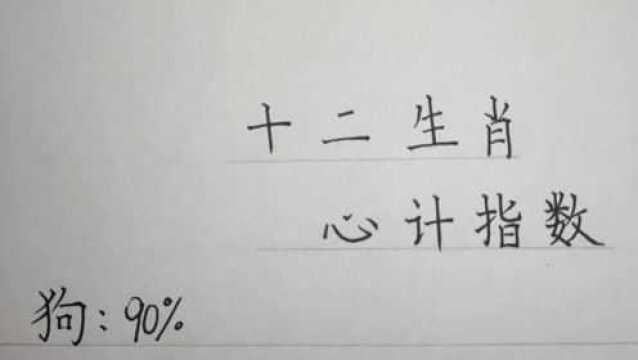 十二生肖
心计指数
狗:90%